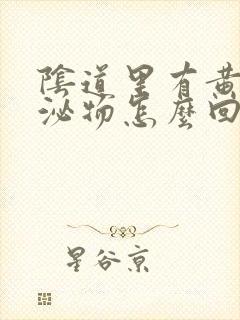 陰道里有黃
泌物怎麼回
星谷京